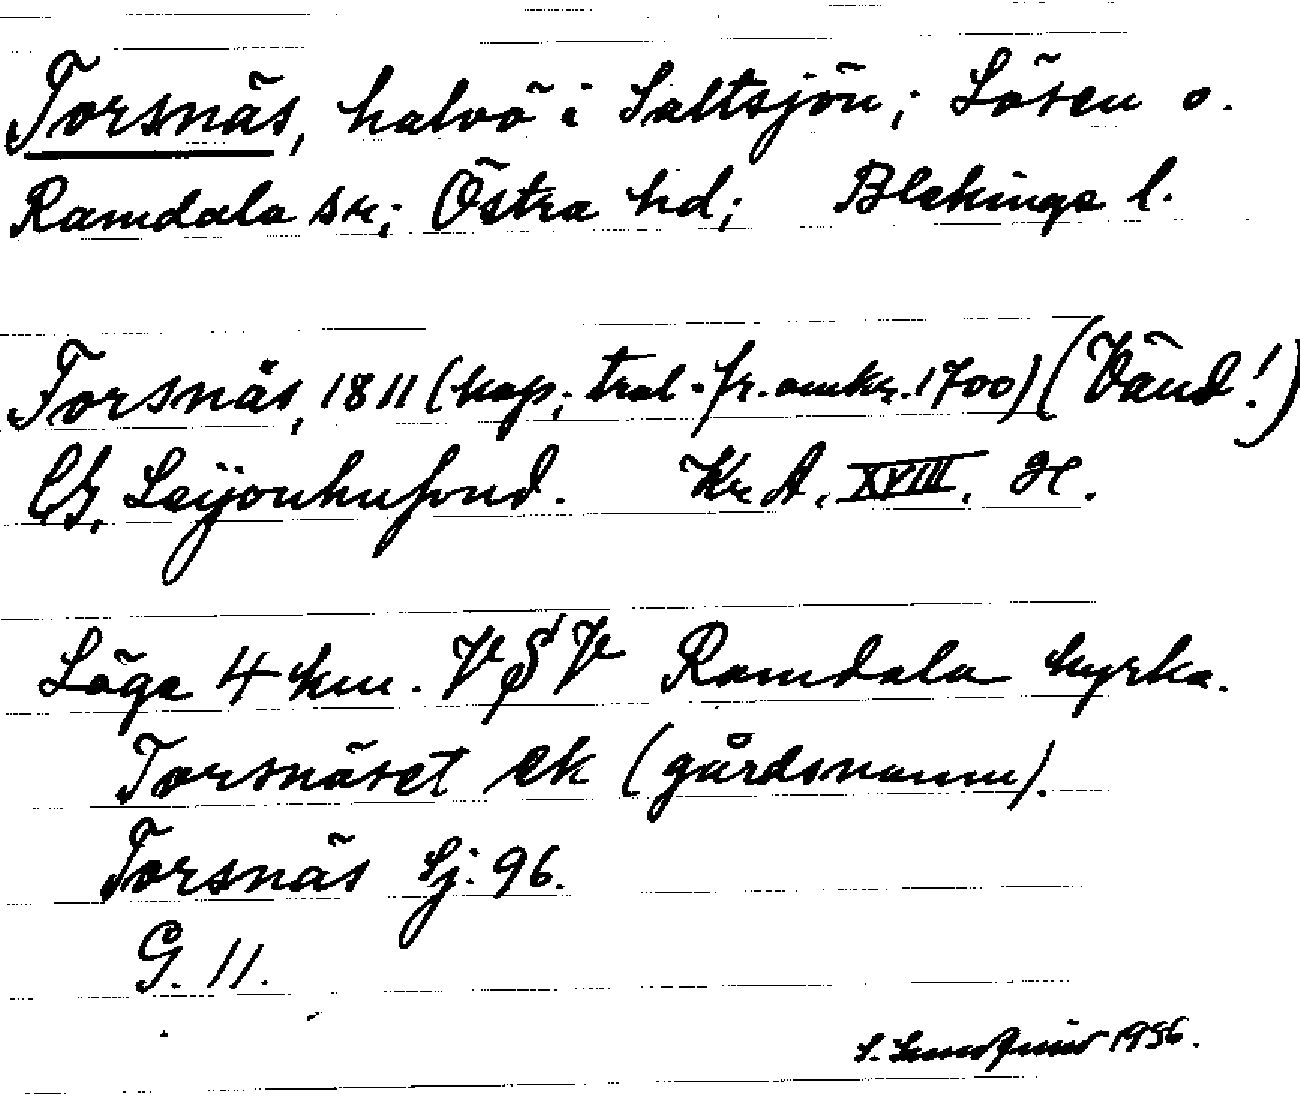 Torsnäs, halvö i Saltsjön; Lösen o.
Ramdala sn; Östra hd; Blekinge l.
Torsnäs, 1811 (kop; tral. fr. omkr. 1700) (Vänd!)
CG. Leijonhufvud. Kr A. XVIII. H.
Läge 4 km. V Ramdala kyrka.
Torsnäset ek (gårdsnamn).
Torsnäs Sj. 96.
G. 11.
S. 1956.